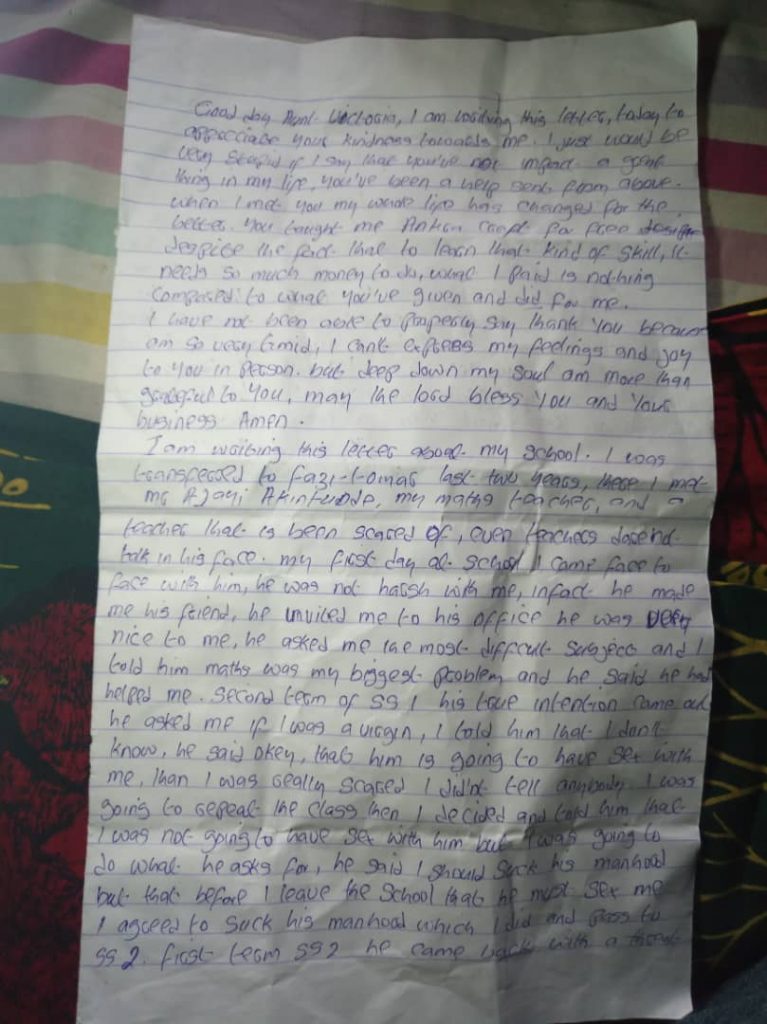 Good day Aunt Victoria, I am writing this letter, today to
appreciate your kindness towards me. I just would be
very stupid if I say that you've not impart a great
thing in my life, you've been a help sent from above.
when I met you my whole life has changed for the
better. You taught me Ankara craft for free
despite the fact that to learn that kind of skill, it
needs so much money to do, what I paid is nothing
compared to what you've given and did for me.
I have not been able to properly say thank you because
am so very timid, I cant express my feelings and joy
to you in person. but deep down my soul am more than
grateful to you, may the lord bless you and your
business Amen.
I am writing this letter about my school. I was
transferred to last two years, there I met
mr Ajayi my maths teacher, and a
teacher that is been scared of, even teachers dosent
talk in his face. my first day at school I came face to
face with him, he was not harsh with me, infact he made
me his friend, he invited me to his office he was very
nice to me, he asked me the most difficult subject and I
told him maths was my biggest problem and he said he had
helped me. second term of SS 1 his true intention came out
he asked me if I was a virgin, I told him that I don't
know, he said okey, that him is going to have sex with
me, than I was really scared I did'nt tell anybody I was
going to repeat the class then I decided and told him that
I was not going to have sex with him but I was going to
do what he asks for, he said I should suck his manhood
but that before I leave the school that he must sex me
I agreed to suck his manhood which I did and pass to
SS 2. first term SS2 he came back with a threat